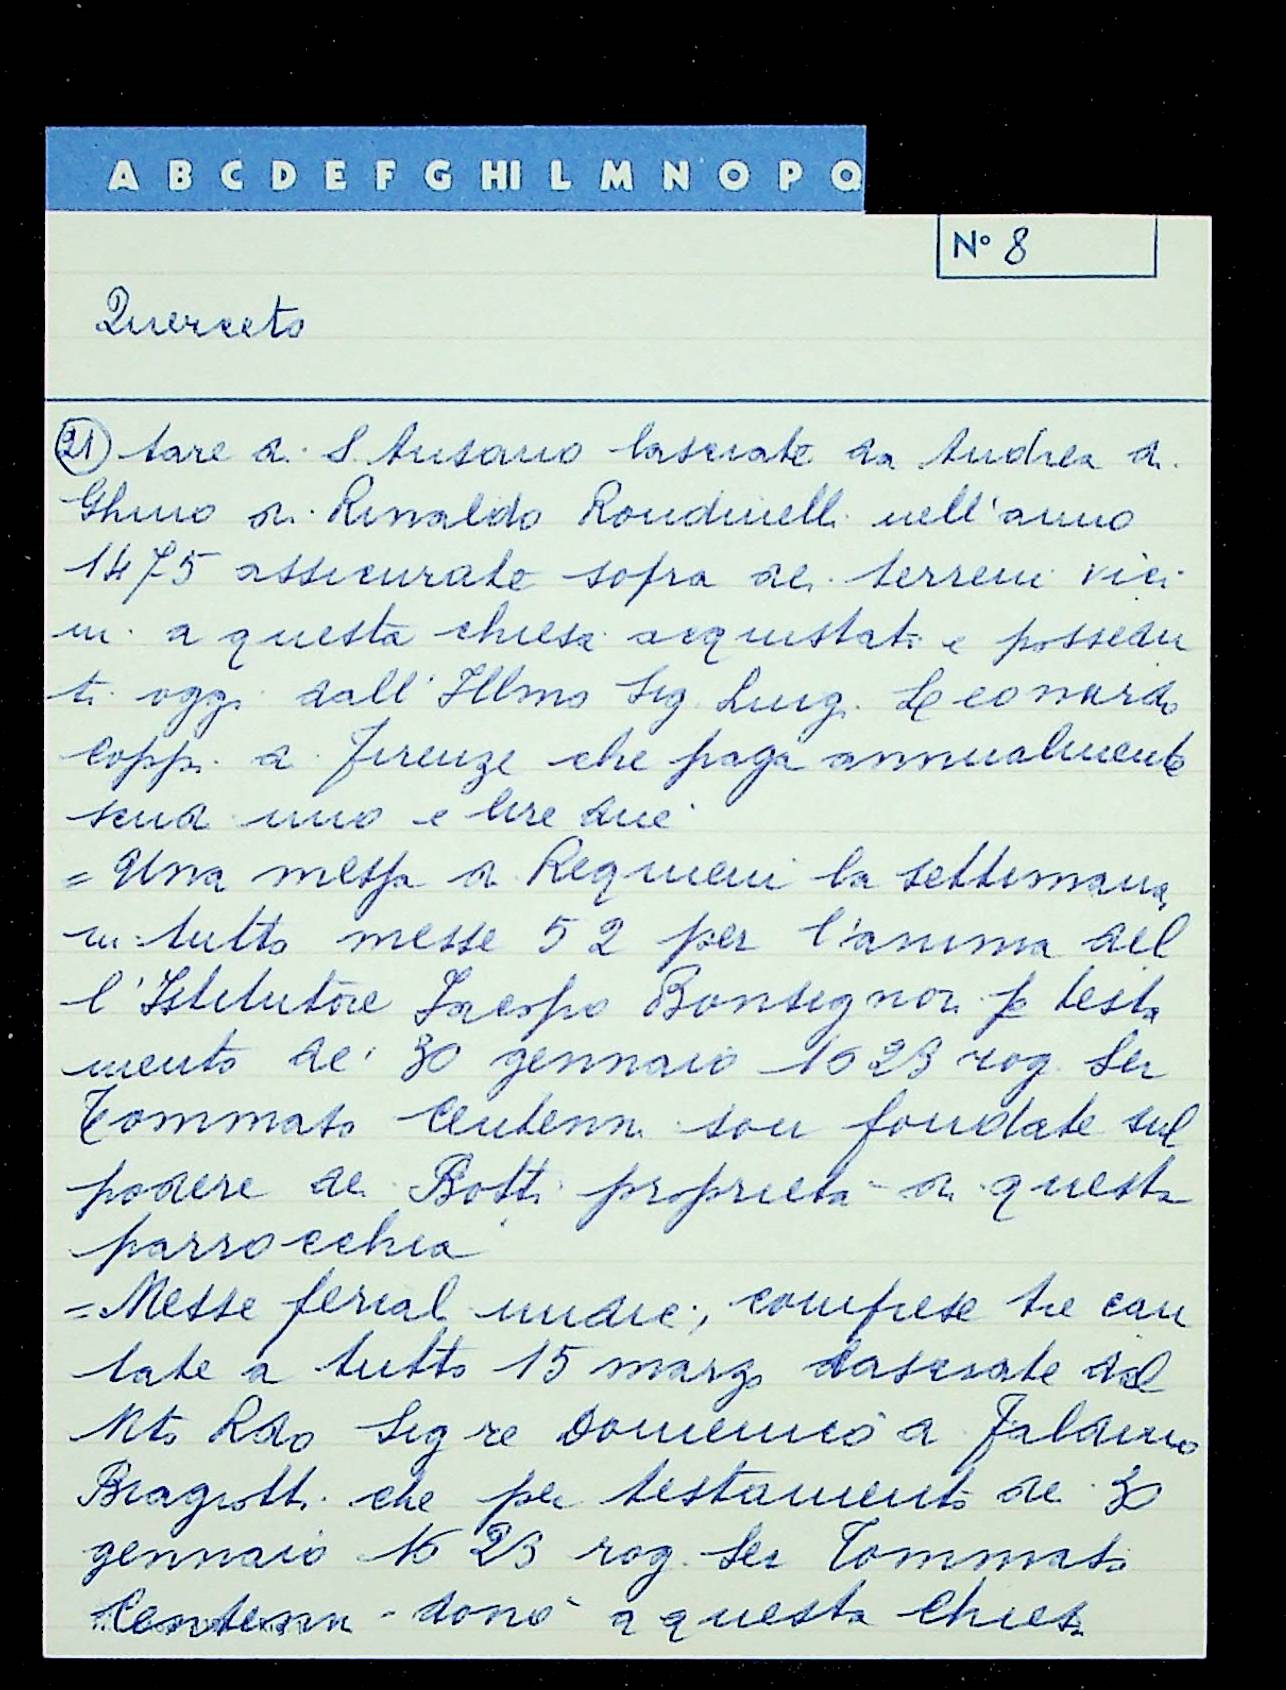 A B C D E F G HI L M N O P Q
N° 8
Querceto
21) tare di S. Ansano lasciate da Andrea di
Ghino di Rinaldo Rondinelli nell'anno
1475 assicurate sopra dei terreni vici
ni a questa chiesa acquistati e possedu
ti oggi dall' Illmo Sig. Luigi Leonardo
Coppi di Firenze che paga annualmente
scudi uno e lire due
= Una messa di Requiem la settimana,
in tutto messe 52 per l'anima del
l'Istitutore Jacopo Bonsignori p testa
mento de' 30 gennaio 1623 rog. Ser
Tommaso Centenni son fondate sul
podere dei Botti proprietà di questa
parrocchia
= Messe feriali undici, comprese tre can
tate a tutto 15 marzo lasciate dal
Mto Rdo Sig re Domenico di Faldino
Biagiotti che per testamento de 30
gennaio 1623 rog. Ser Tommaso
Centenni donò a questa Chiesa